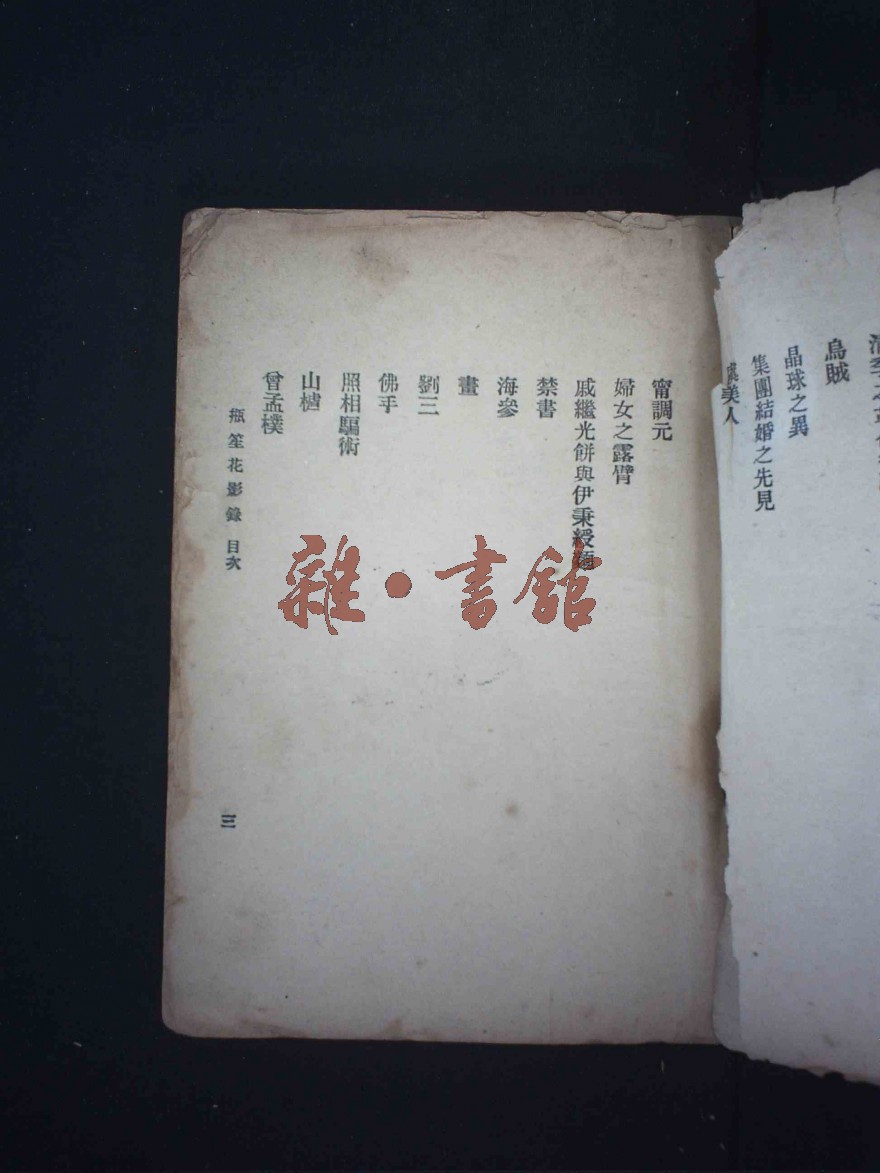 烏賊
晶球之異
集團結婚之先見
虞美人
甯調元
婦女之露臂
戚繼光餅與伊秉綬麵
禁書
海參
畫
劉三
佛手
照相騙術
山樝
曾孟樸
瓶笙花影錄 目次
三
雜·書館